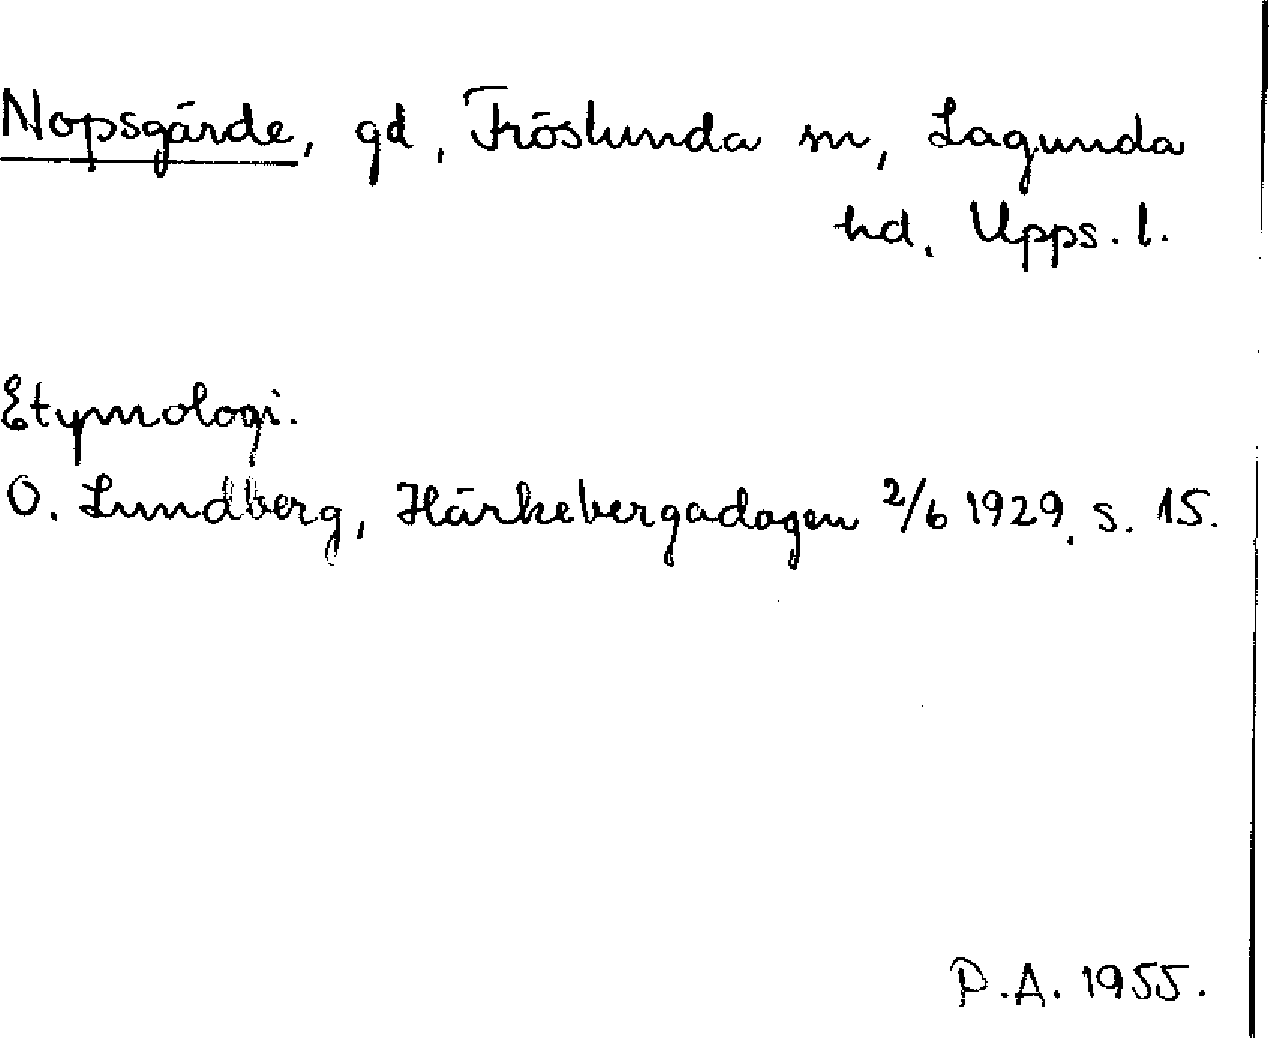 Nopsgärde, gd, Fröslunda sn, Lagunda
hd. Upps. l.
Etymologi.
O. Lundberg, Härkebergadagen 2/6 1929, s. 15.
P.A. 1955.